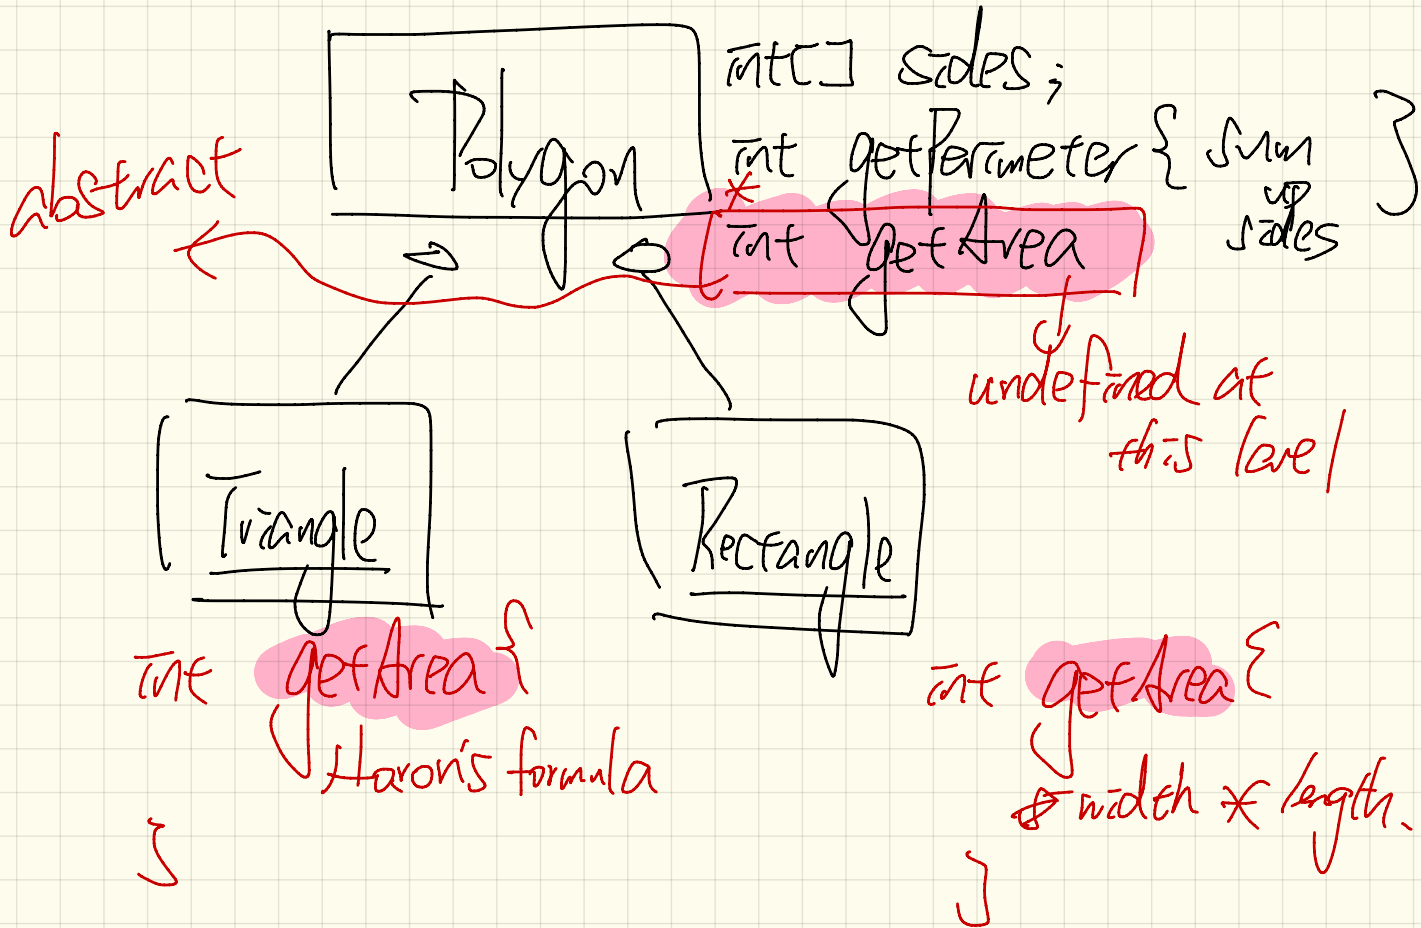 Polygon
int[] sides;
int getPerimeter { sum up sides }
* int getArea
abstract
undefined at
this level
Triangle
Rectangle
int getArea {
Haron's formula
}
int getArea {
width * length.
}